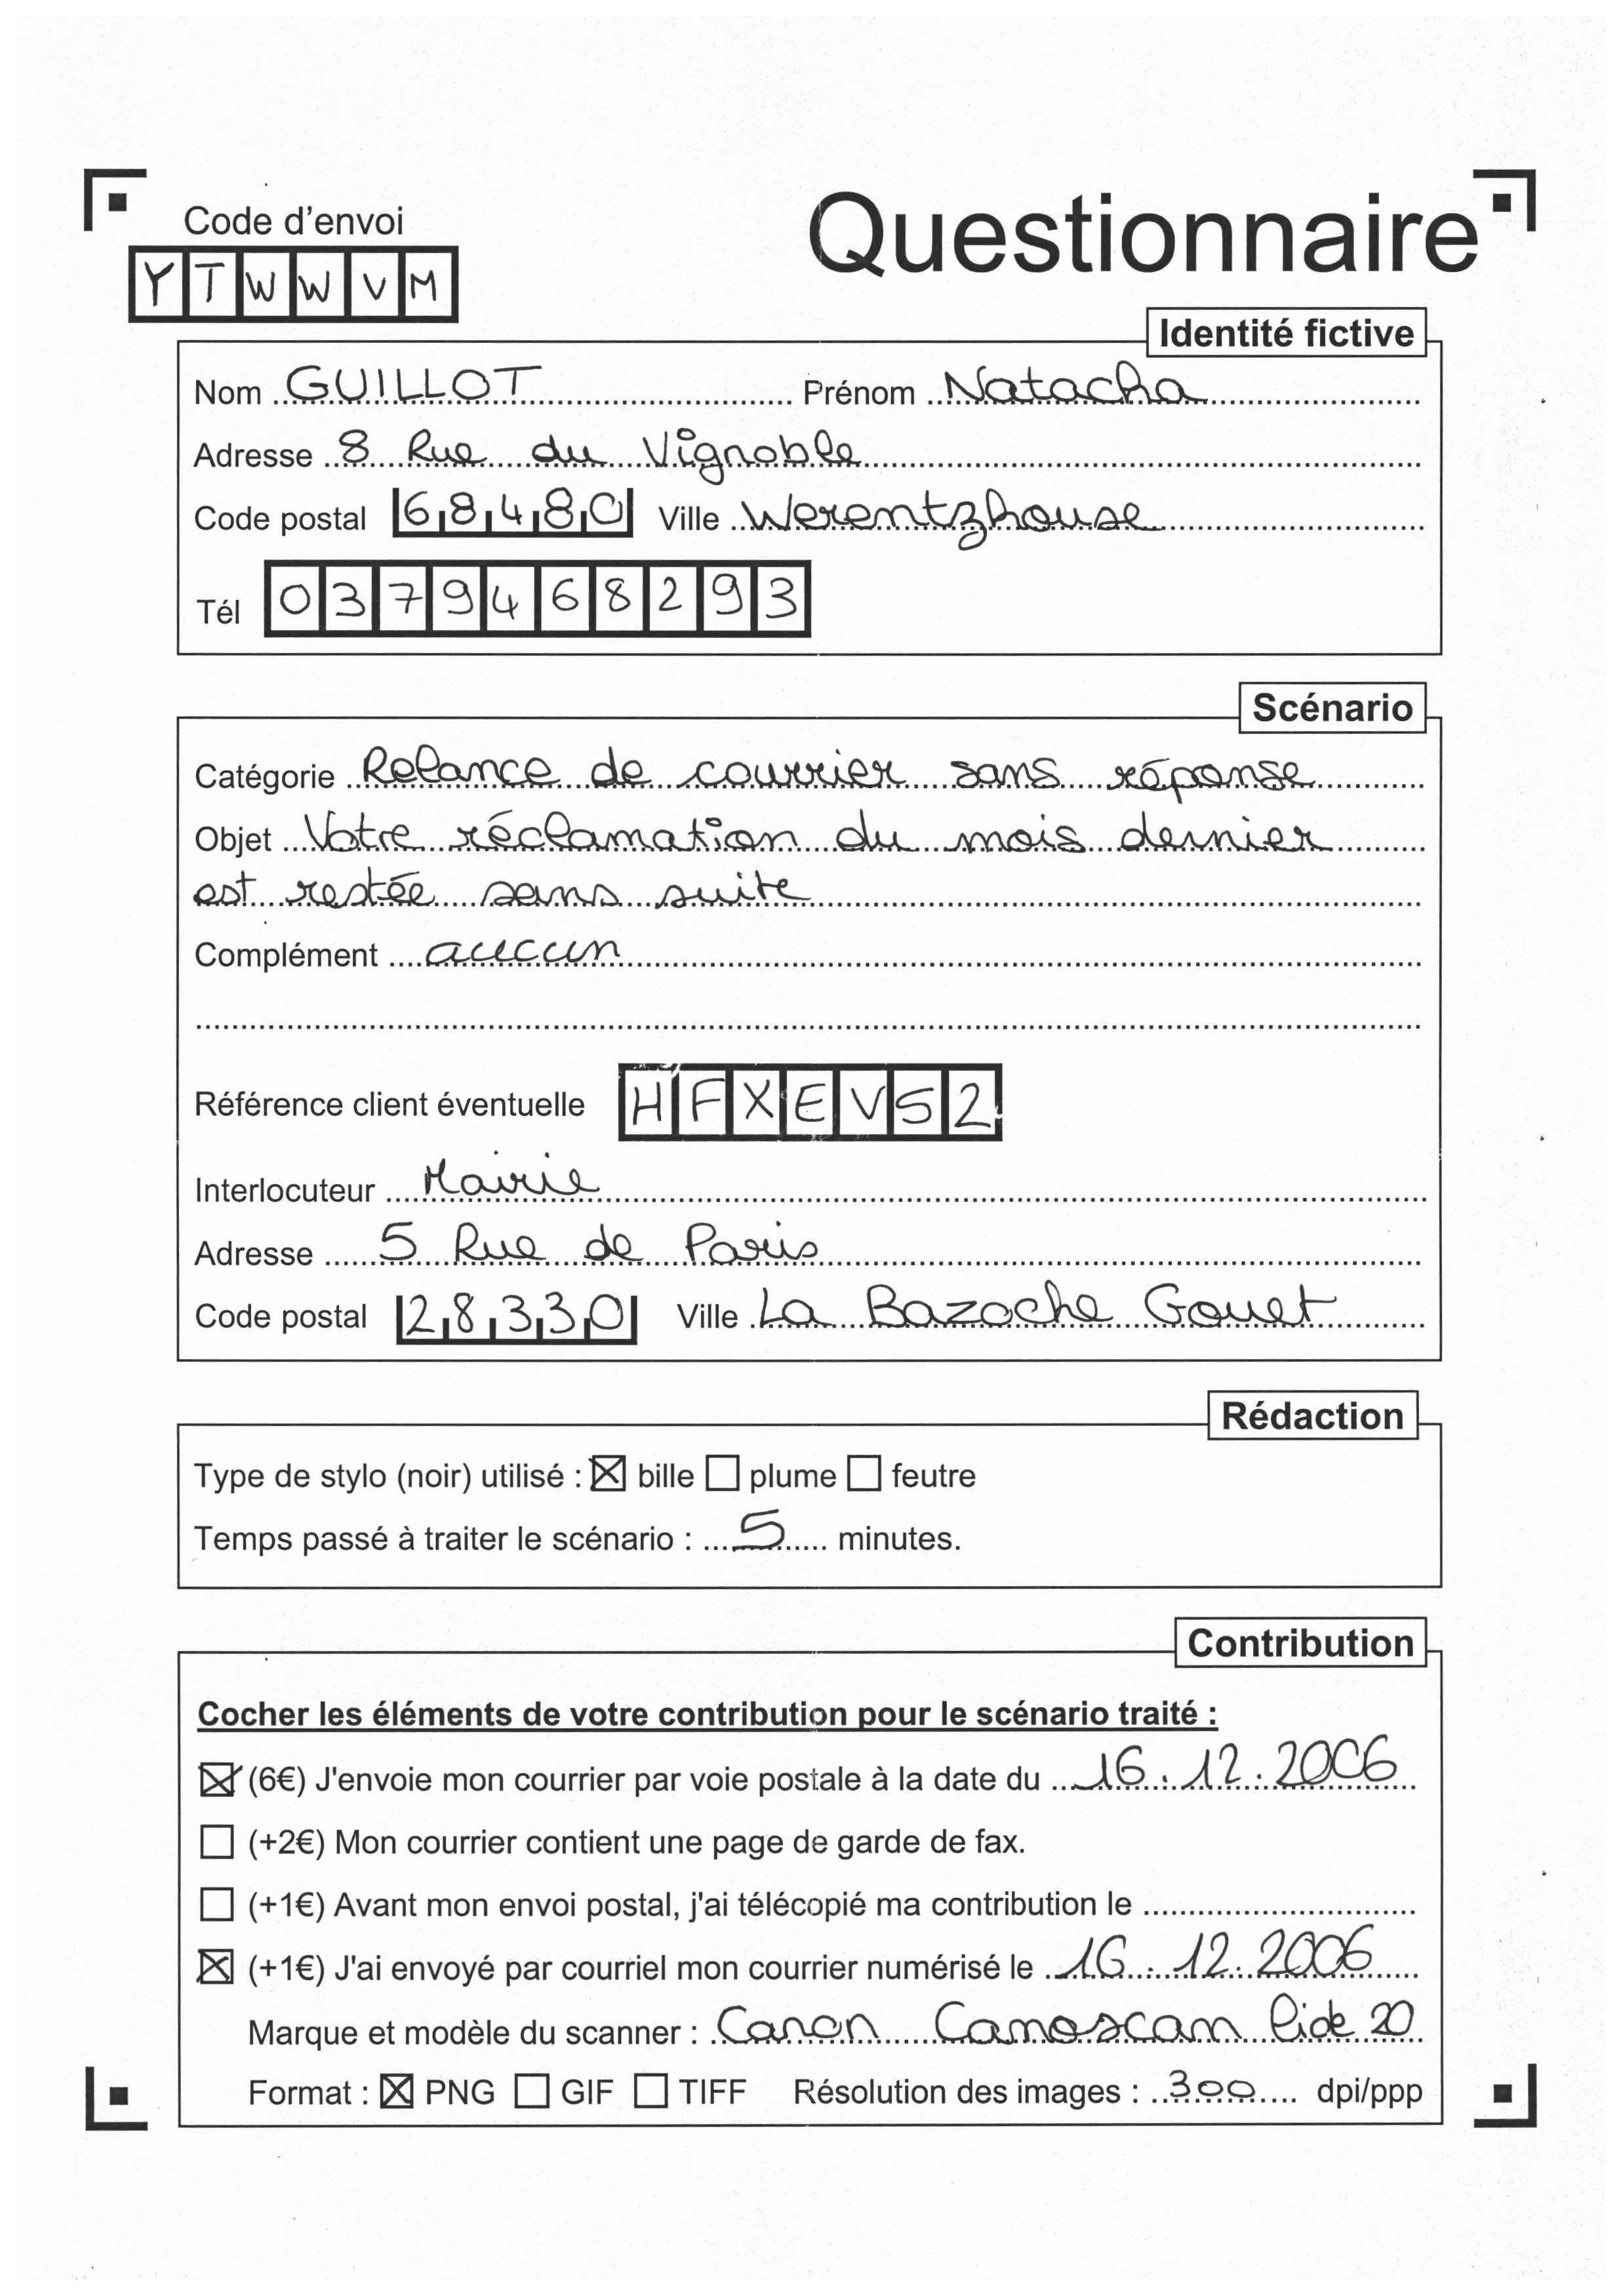 Code d'envoi
Questionnaire
YTWWVM
Identité fictive
Nom GUILLOT Prénom Natacha
Adresse 8 Rue du Vignoble
Code postal 68480 Ville Werentzhouse
Tél 0379468293
Scénario
Catégorie Relance de courrier sans réponse
Objet Votre réclamation du mois dernier
est restée sans suite
Complément aucun
Référence client éventuelle HFXEVS2
Interlocuteur Mairie
Adresse 5 Rue de Paris
Code postal 28330 Ville La Bazoche Gouet
Rédaction
Type de stylo (noir) utilisé : ☒ bille ☐ plume ☐ feutre
Temps passé à traiter le scénario : 5 minutes.
Contribution
Cocher les éléments de votre contribution pour le scénario traité :
☒ (6€) J'envoie mon courrier par voie postale à la date du 16.12.2006
☐ (+2€) Mon courrier contient une page de garde de fax.
☐ (+1€) Avant mon envoi postal, j'ai télécopié ma contribution le
☒ (+1€) J'ai envoyé par courriel mon courrier numérisé le 16.12.2006
Marque et modèle du scanner : Canon Canoscan lide 20
Format : ☒ PNG ☐ GIF ☐ TIFF Résolution des images : 300 dpi/ppp